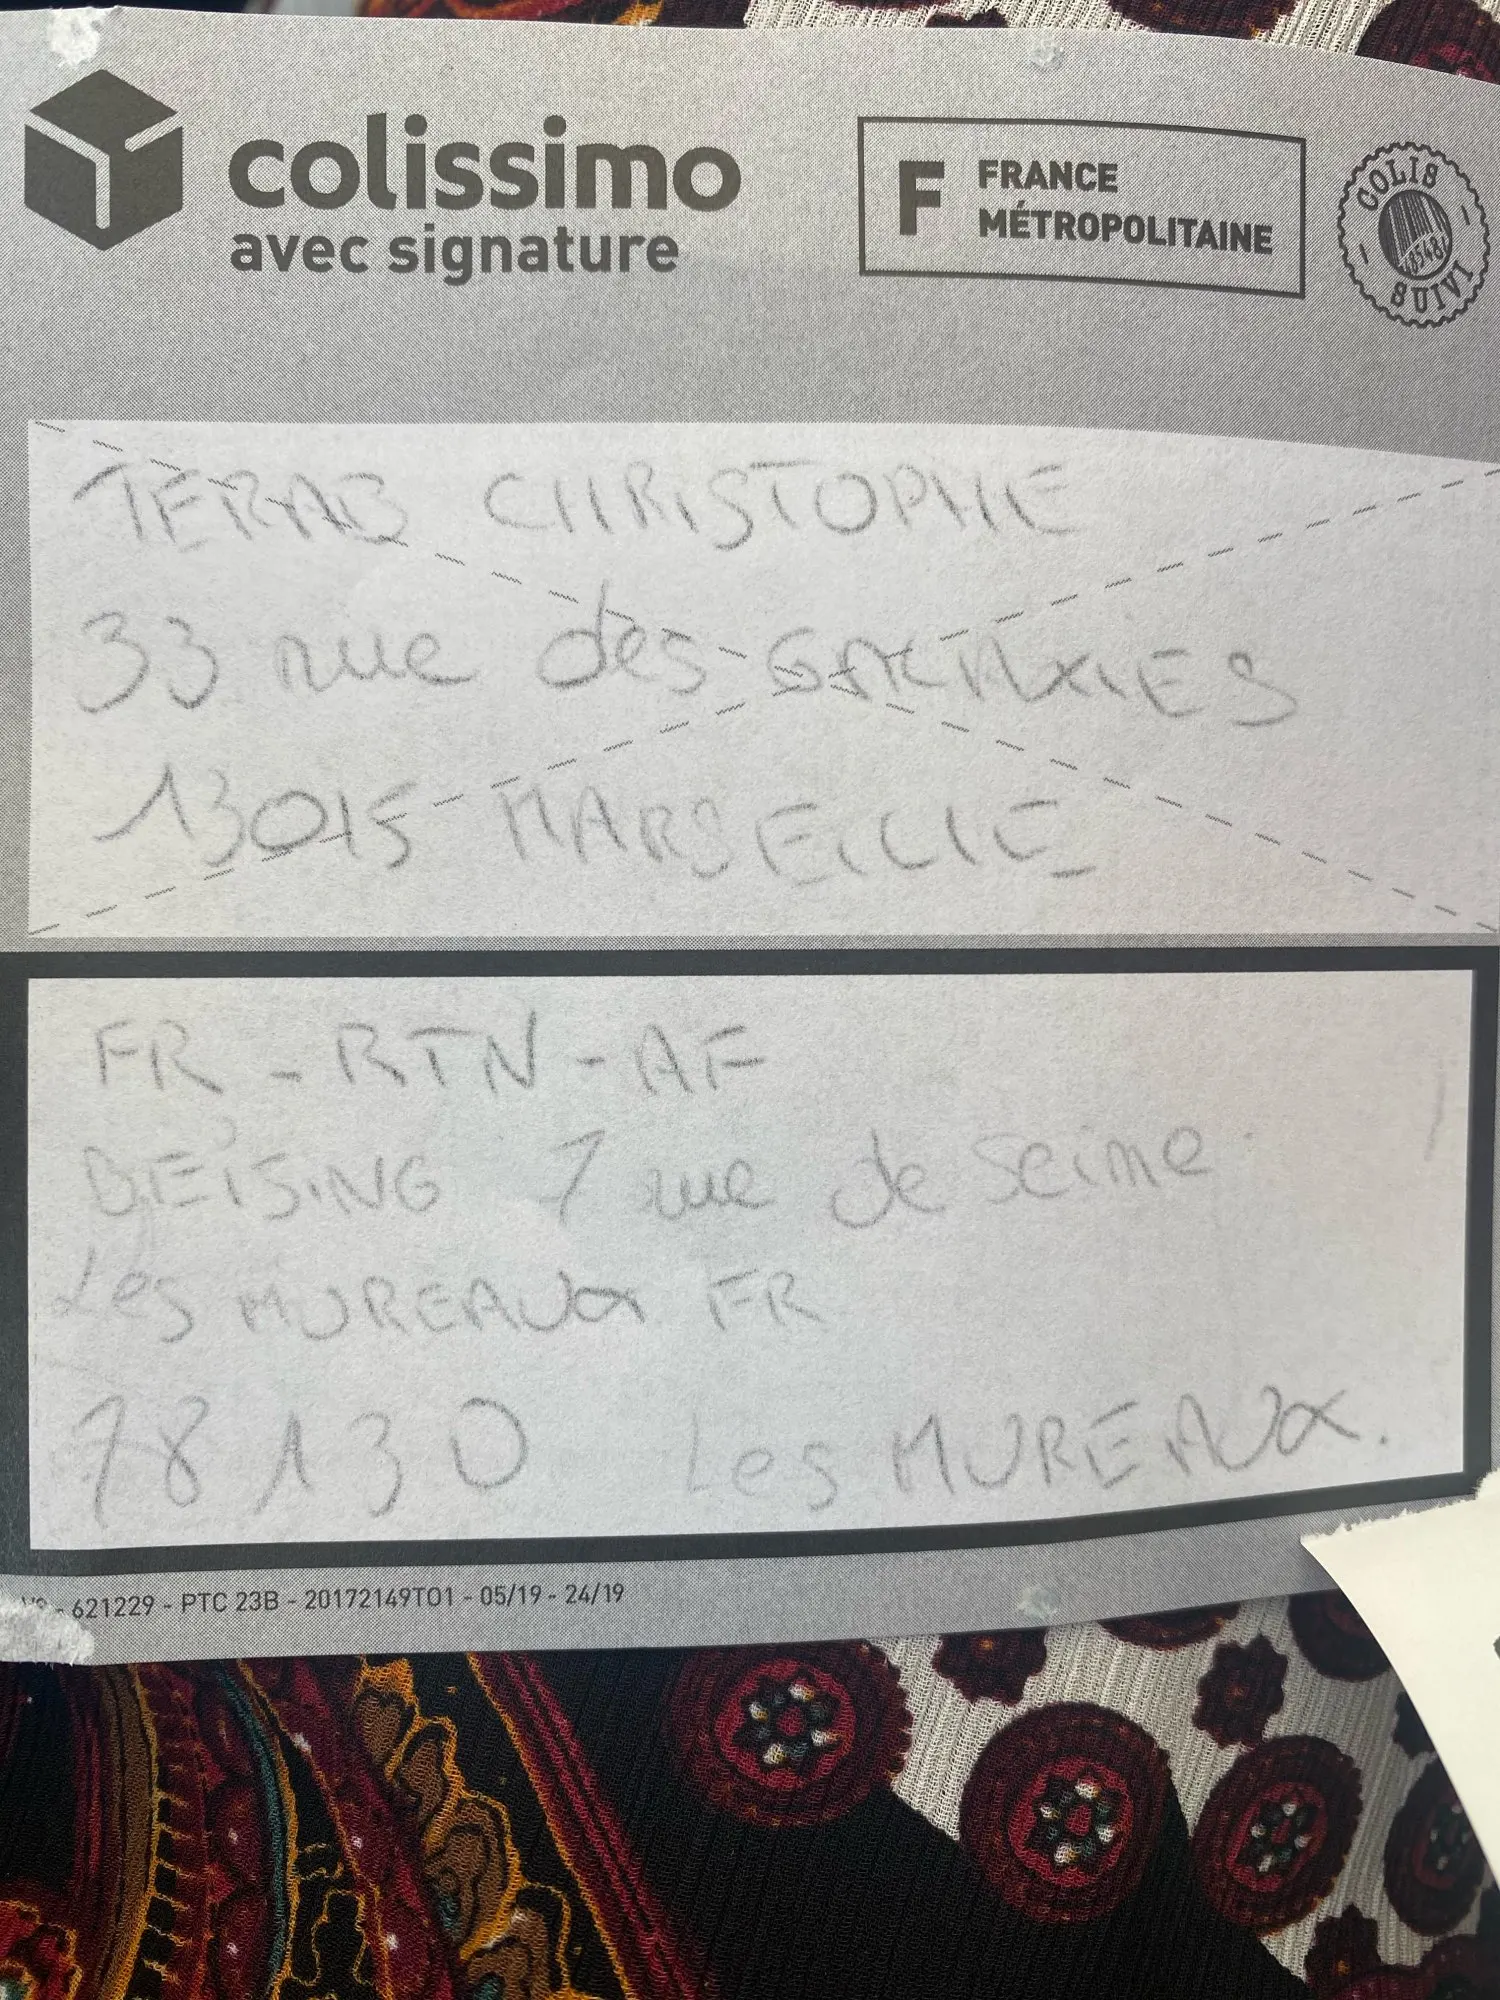 colissimo
avec signature
F FRANCE
MÉTROPOLITAINE
COLIS
8548
SUIVI
TERAB CHRISTOPHE
33 rue des GALAXIES
13015 MARSEILLE
FR-RTN-AF
BEISING 1 rue de Seine
Les MUREAUX FR
78130 Les MUREAUX.
- 621229 - PTC 23B - 20172149T01 - 05/19 - 24/19